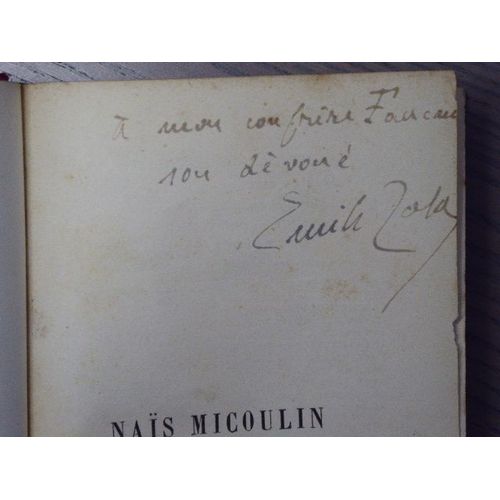 à mon confrère
son dévoué
Emile Zola
NAÏS MICOULIN